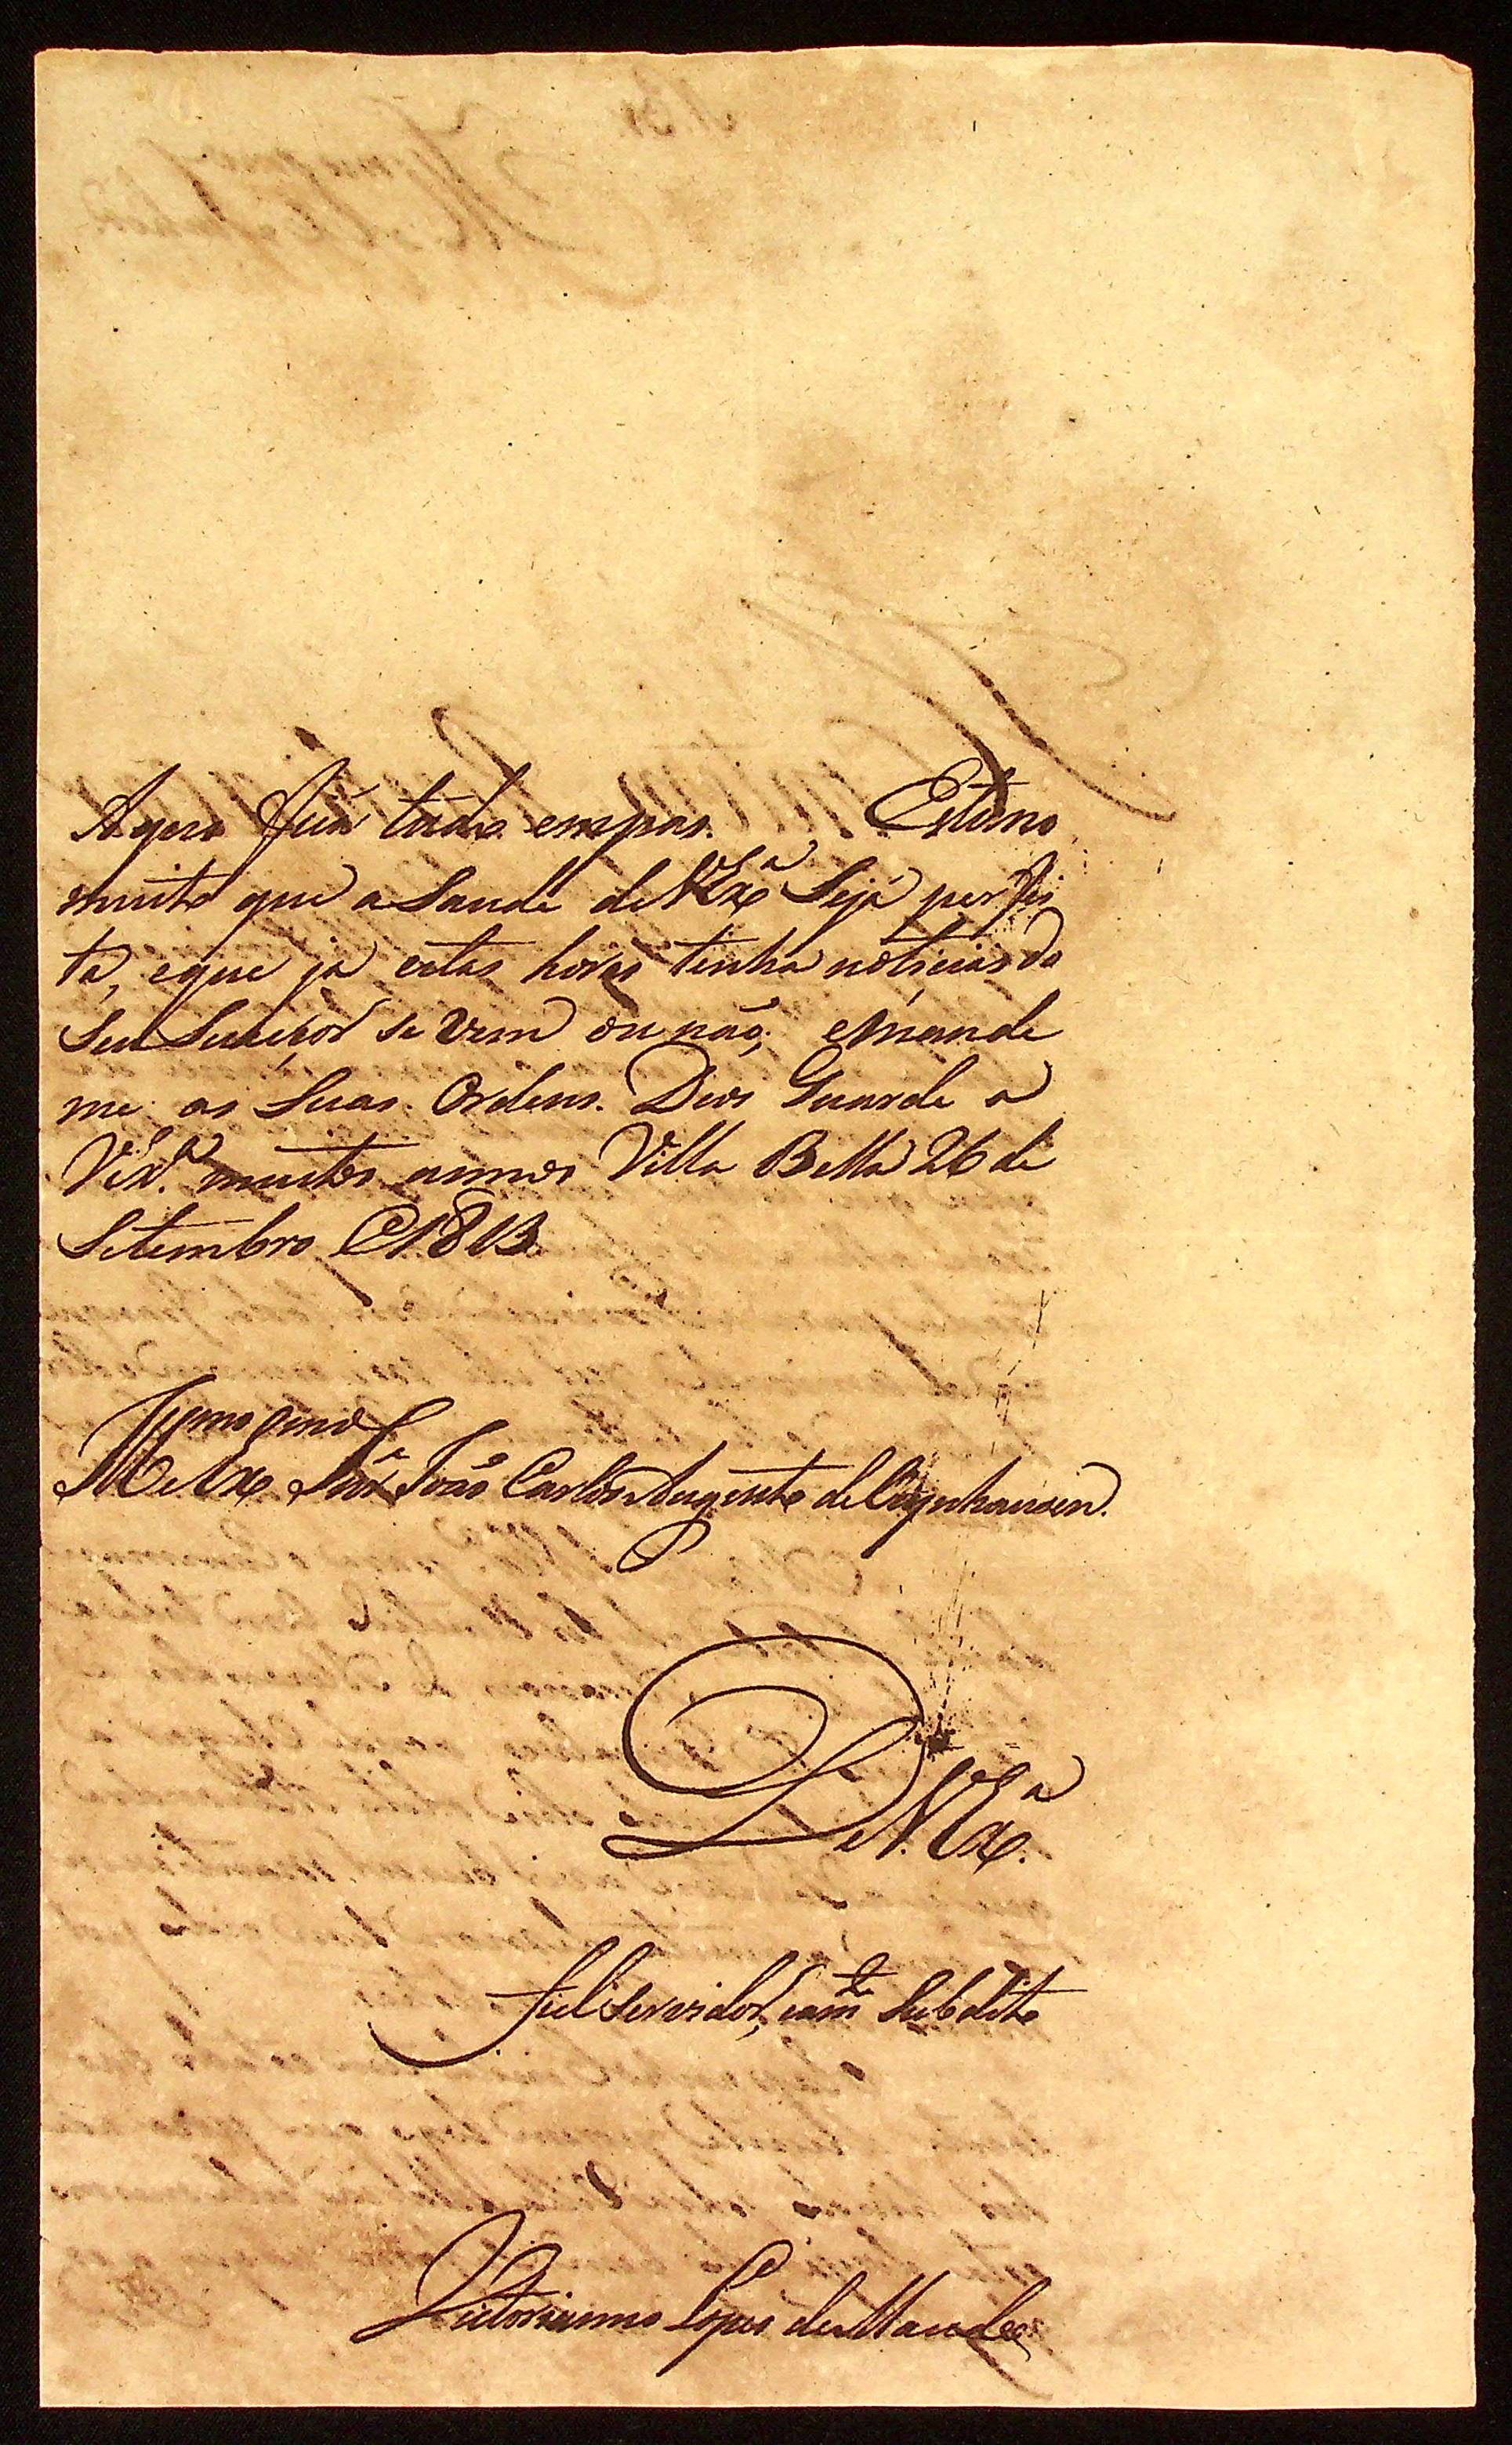 Agora fica tudo em pas. Estimo
muito que a Saude de V Exª Seja perfei
ta, eque ja estas horas tinha noticias do
Seu Sucecor se vem ou não; emande
me as Suas Ordens. Deos Guarde a
V Exª. muitos annos Villa Bella 26 de
Setembro de 1813
Illmo e Exmo Snr João Carlos Augusto de Oeynhausen.
De V. Exª.
fiel servidor, eamte Subdito
Victorianno Lopes de Macedo